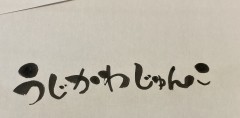 うじかわじゅんこ